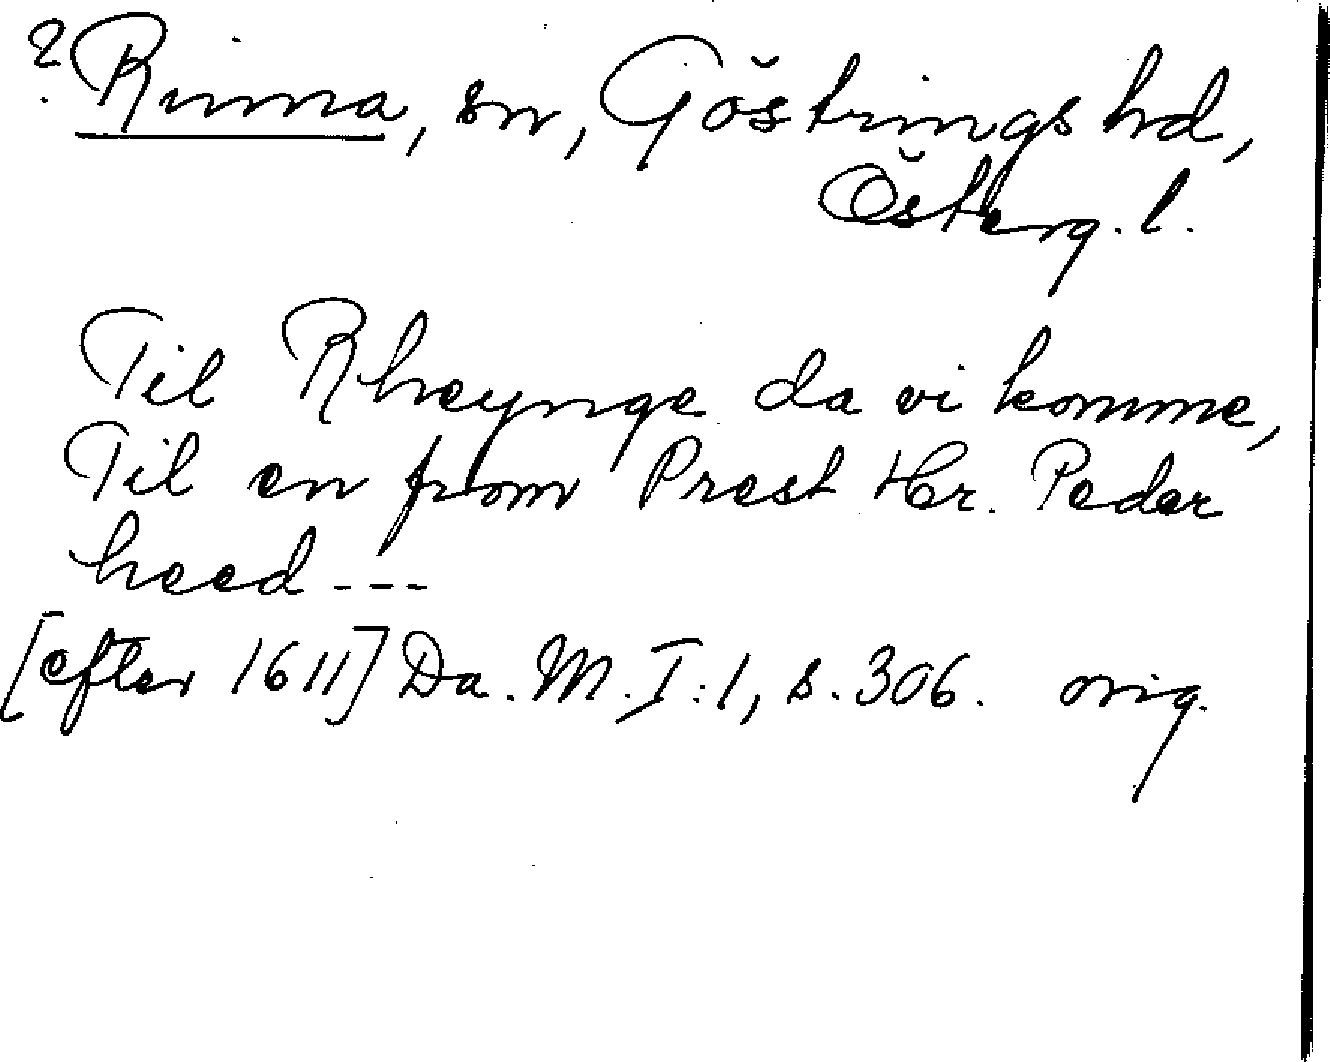 ? Rinna, sn, Göstrings hd,
Österg. l.
Til Rheynge da vi komme,
Til en from Prest Hr. Peder
heed ---
[efter 1611] Da. M. I:1, s. 306. orig.